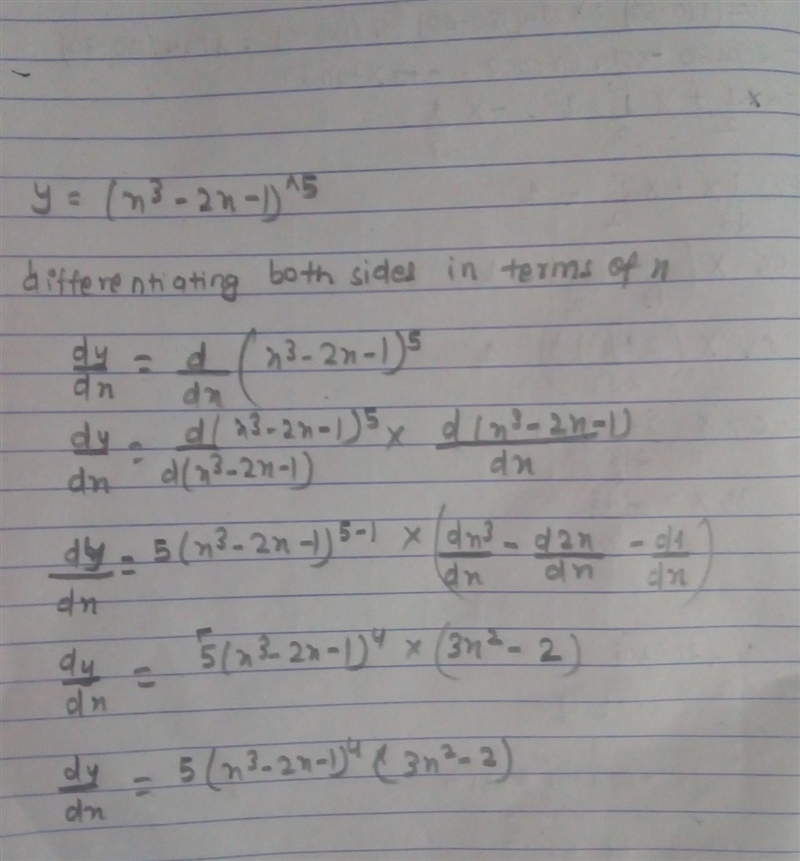 y = (x³ - 2x - 1)^5
differentiating both sides in terms of x
dy/dx = d/dx (x³ - 2x - 1)⁵
dy/dx = d(x³ - 2x - 1)⁵/d(x³ - 2x - 1) × d(x³ - 2x - 1)/dx
dy/dx = 5(x³ - 2x - 1)⁵⁻¹ × (dx³/dx - d2x/dx - d1/dx)
dy/dx = 5(x³ - 2x - 1)⁴ × (3x² - 2)
dy/dx = 5(x³ - 2x - 1)⁴ (3x² - 2)